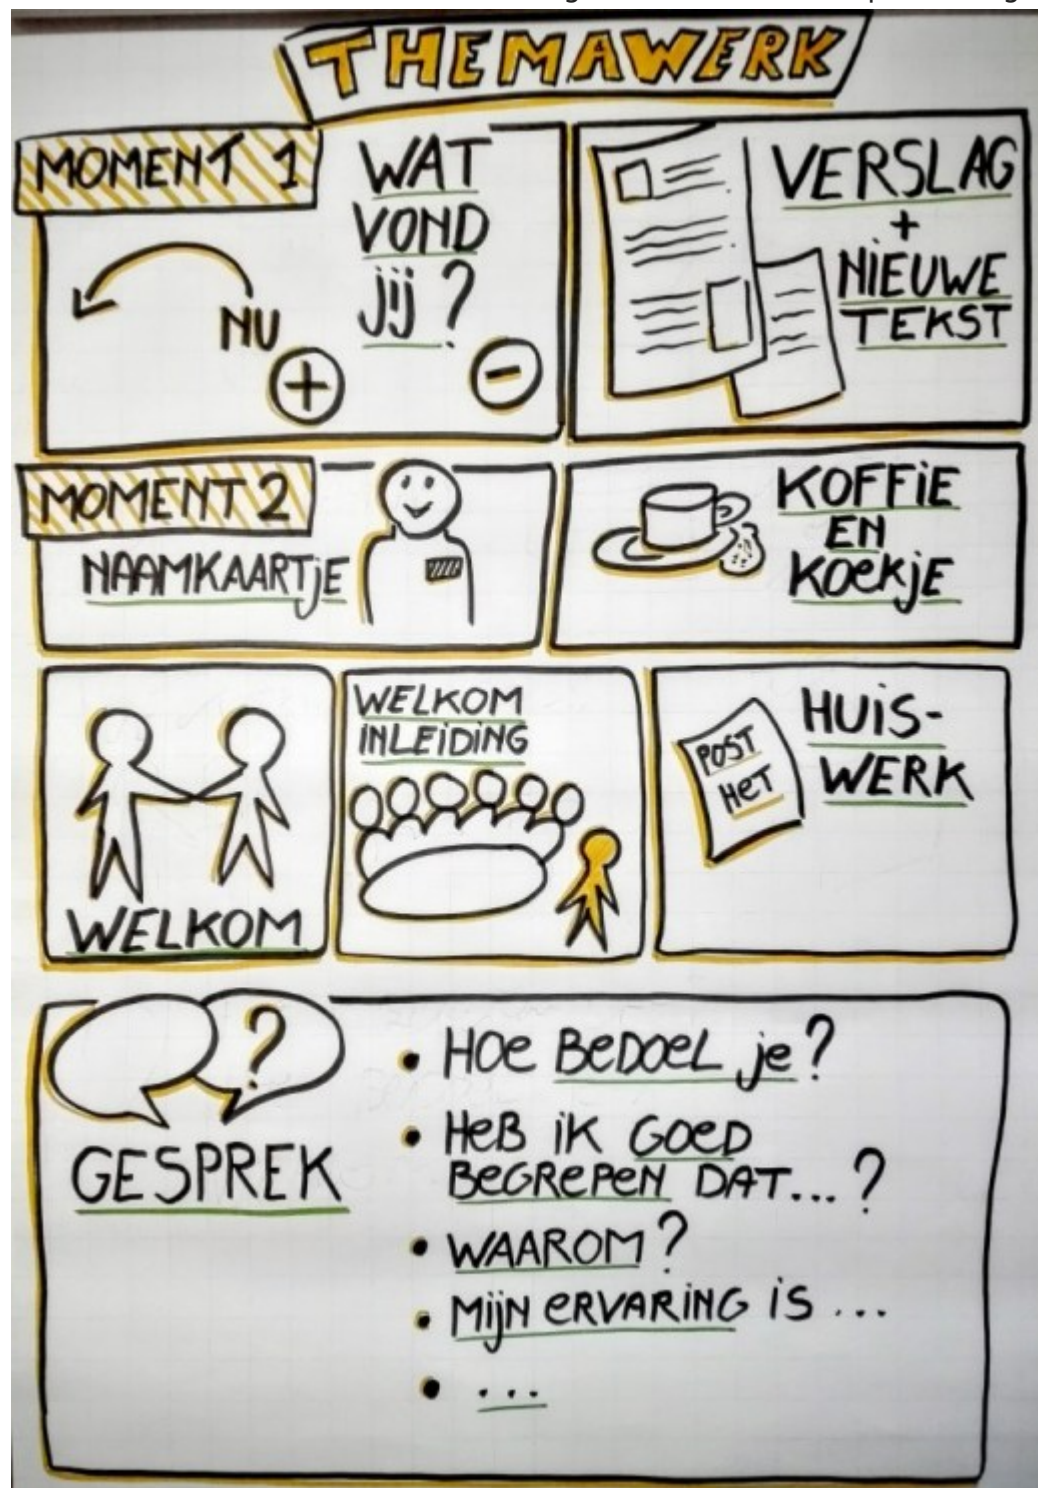 THEMAWERK
MOMENT 1
WAT
VOND
jij?
NU
+
-
VERSLAG
+
NiEUWE
TEKST
MOMENT 2
NAAMKAARTjE
KOFFiE
EN
KOekjE
WELKOM
WELKOM
iNLEiDiNG
POST
HeT
HUiS-
WERK
?
GESPREK
• HOe BeDOeL je?
• HeB iK GOeD
BeGRePeN DAT...?
• WAAROM?
• MijN eRVARiNG iS ...
• ...